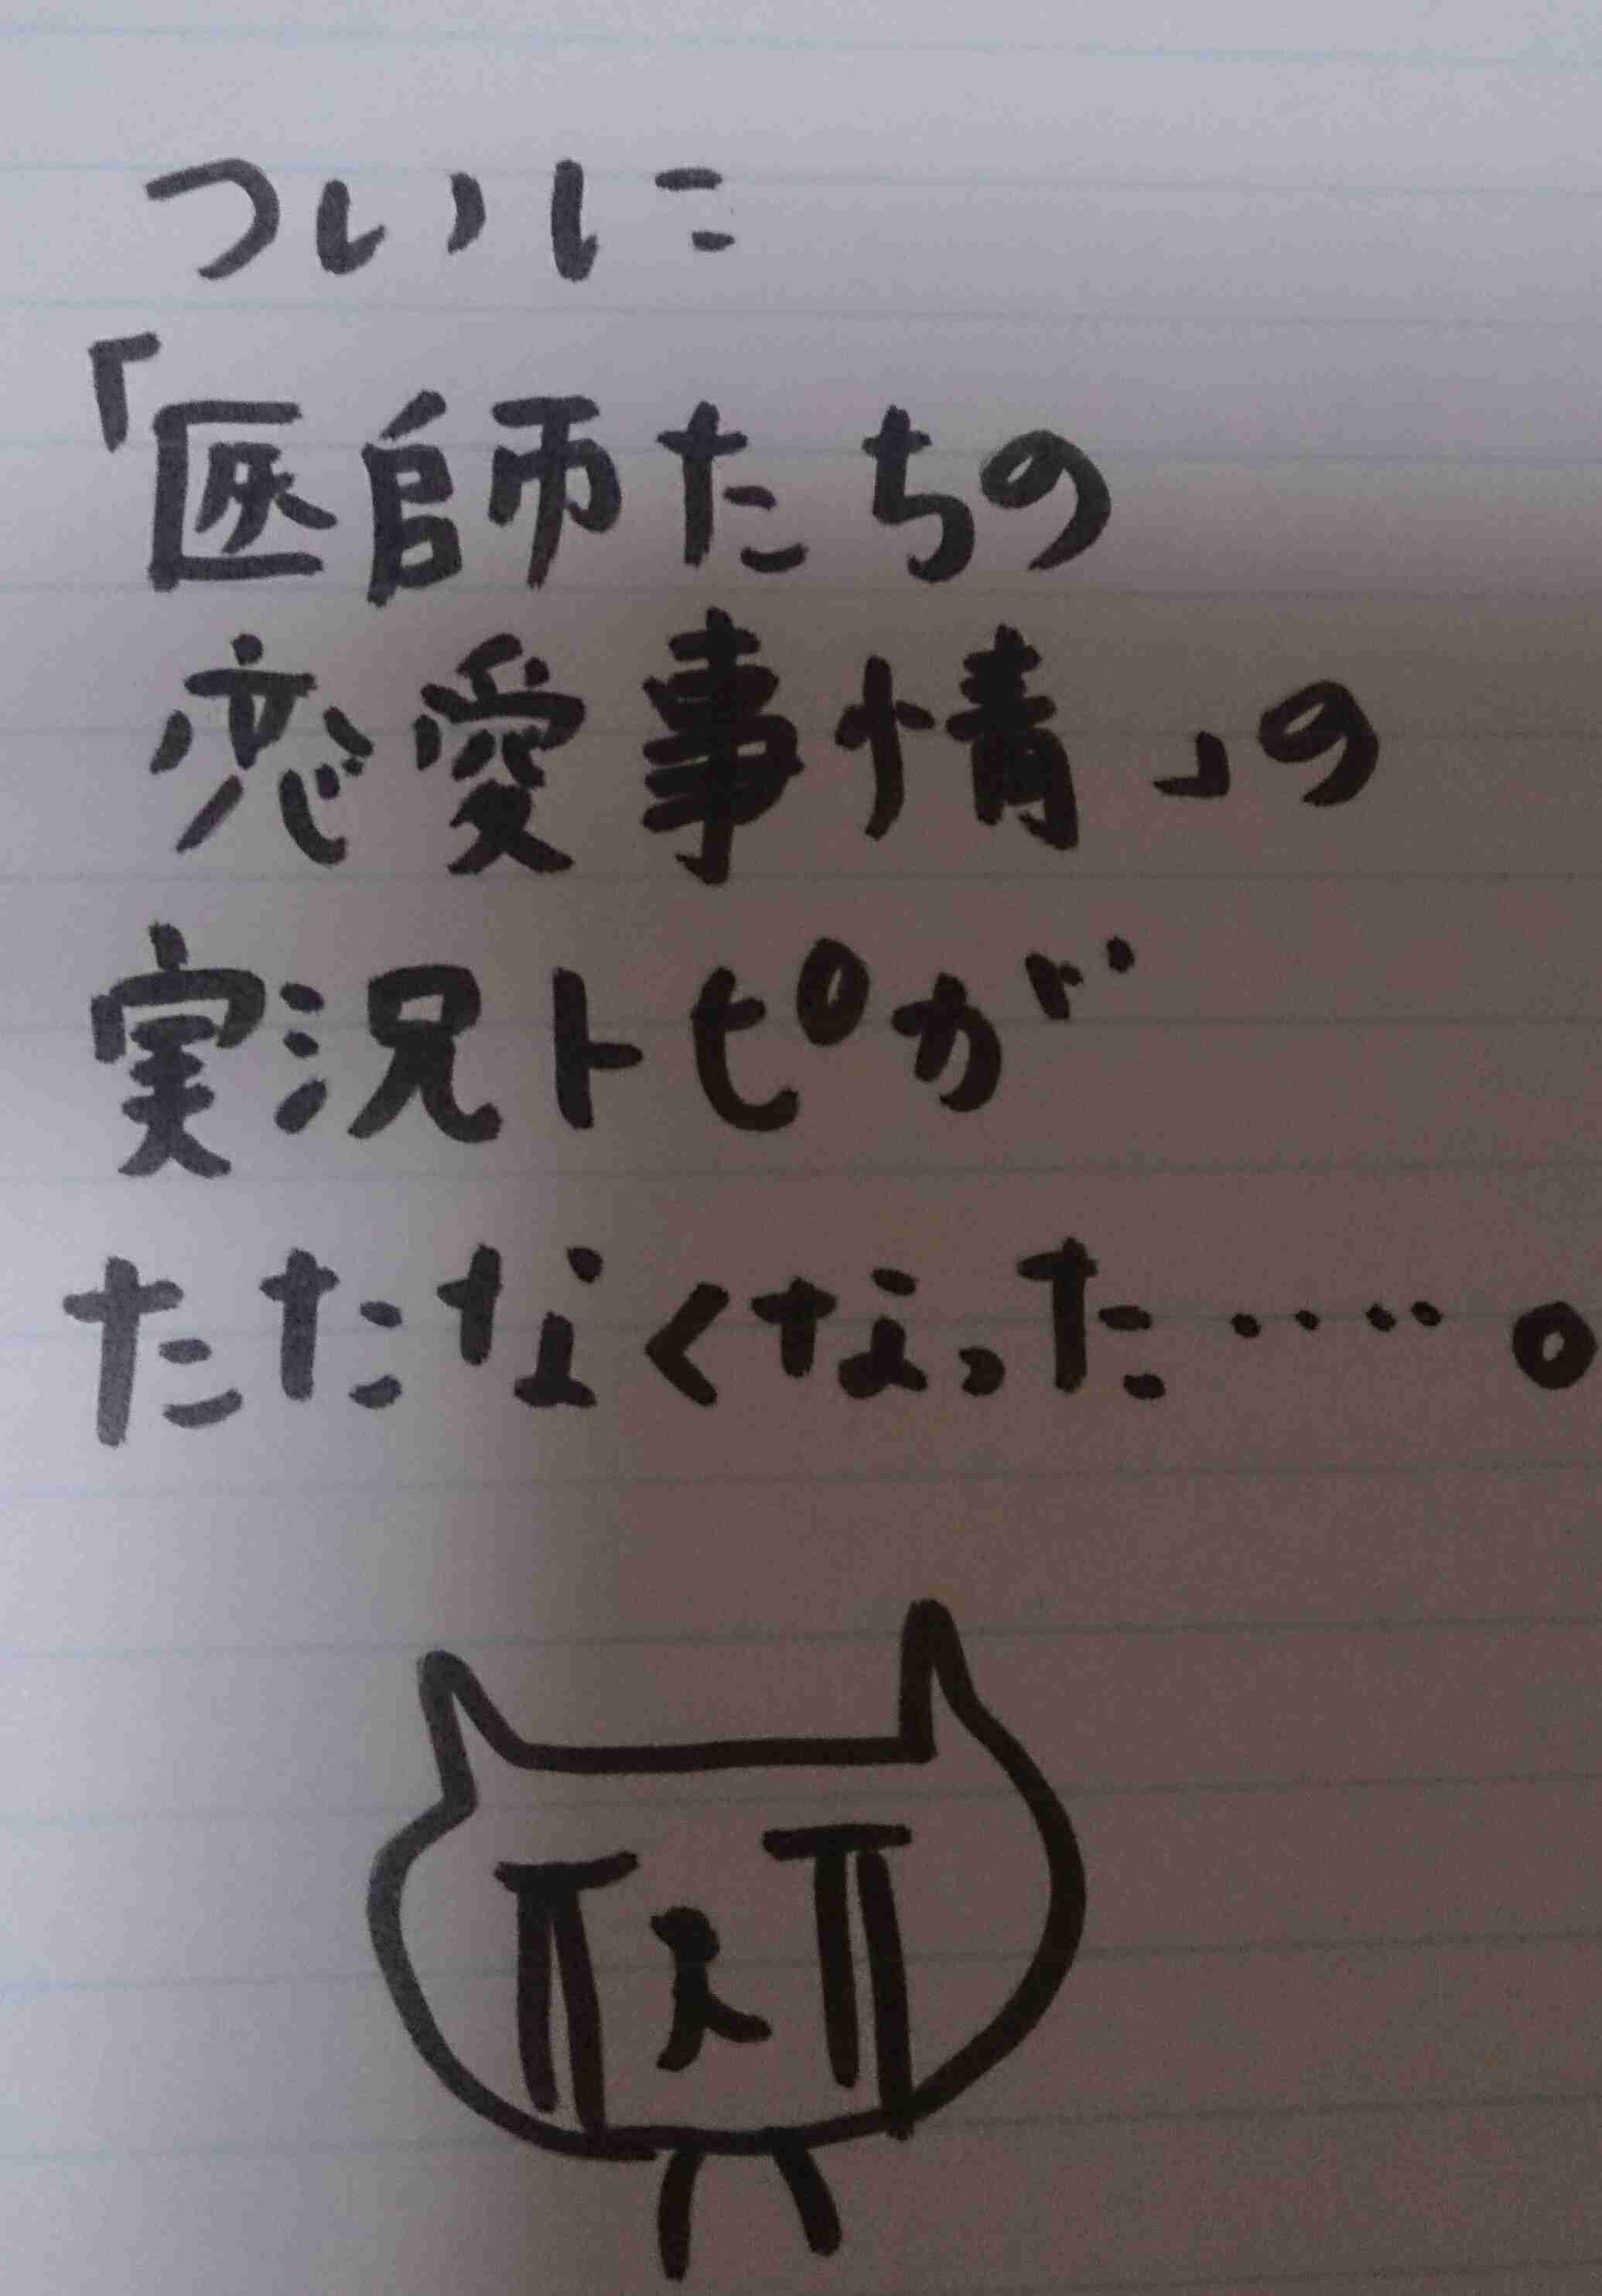 ついに
「医師たちの
恋愛事情」の
実況トピが
たたなくなった……。